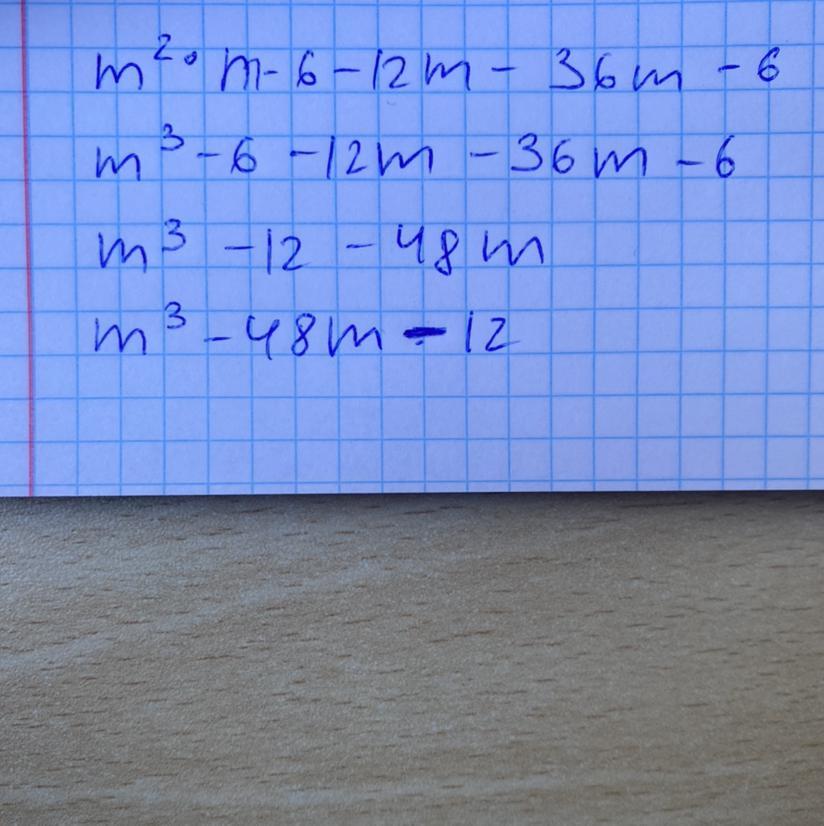 m²· m - 6 - 12m - 36m - 6
m³ - 6 - 12m - 36m - 6
m³ - 12 - 48m
m³ - 48m - 12